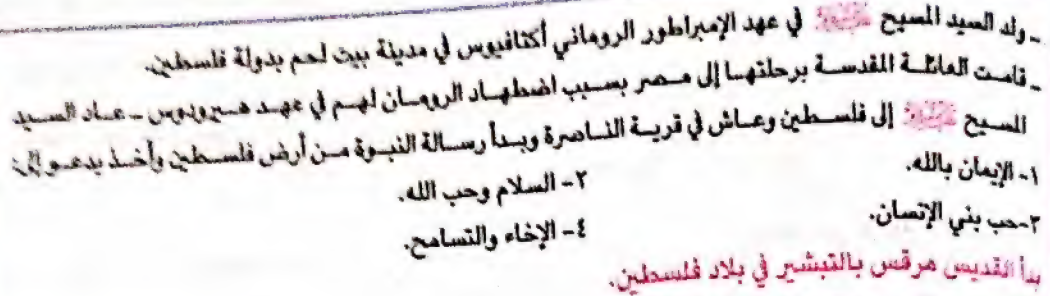 - ولد السيد المسيح في عهد الإمبراطور الروماني أكتافيوس في مدينة بيت لحم بدولة فلسطين.
- قامت العائلة المقدسة برحلتها إلى مصر بسبب اضطهاد الرومان لهم في عهد هيرودوس - عاد السيد
المسيح إلى فلسطين وعاش في قرية الناصرة وبدأ رسالة النبوة من أرض فلسطين وأخذ يدعو إلى:
١- الإيمان بالله. ٢- السلام وحب الله.
٣-حب بني الإنسان. ٤- الإخاء والتسامح.
بدأ القديس مرقس بالتبشير في بلاد فلسطين.